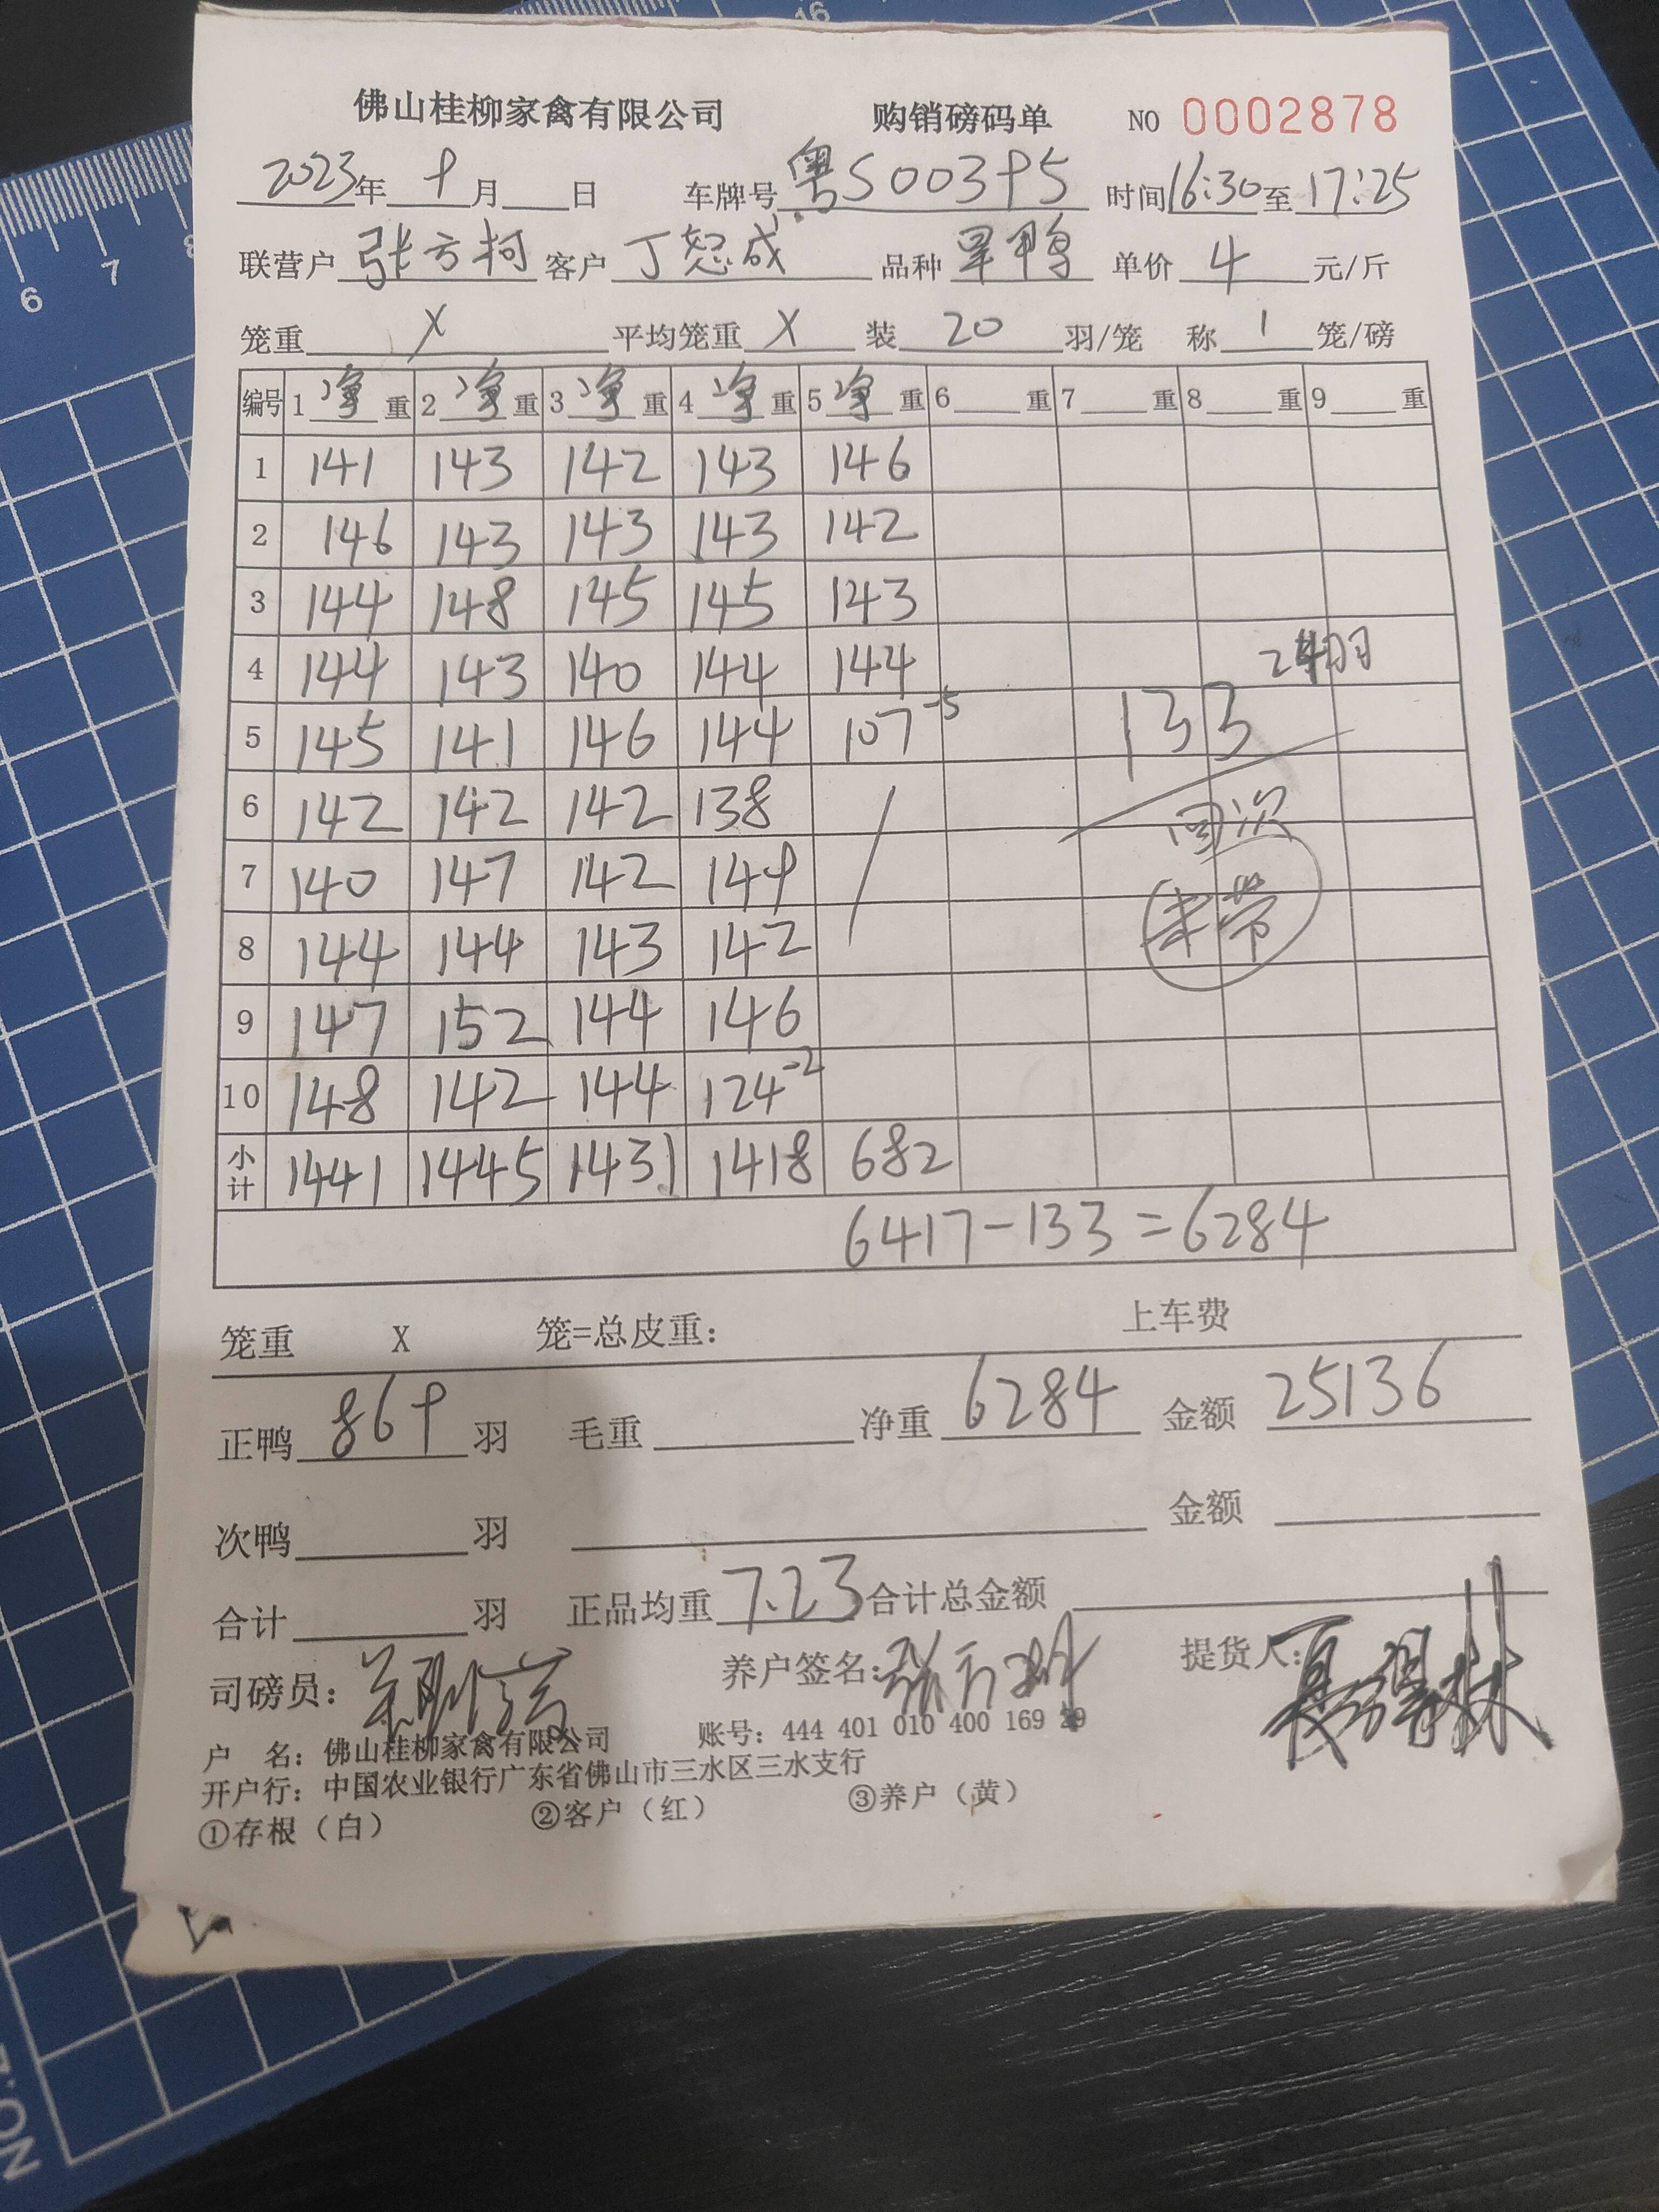 佛山桂柳家禽有限公司 购销磅码单 NO 0002878
2023年 9月 日 车牌号 粤S00395 时间16:30至17:25
联营户 张方柯 客户 丁恕成 品种 旱鸭 单价 4 元/斤
笼重 X 平均笼重 X 装 20 羽/笼 称 1 笼/磅
编号 1净重 2净重 3净重 4净重 5净重 6 重 7 重 8 重 9 重
1 141 143 142 143 146
2 146 143 143 143 142
3 144 148 145 145 143
4 144 143 140 144 144
5 145 141 146 144 107-5 133
6 142 142 142 138 回次
7 140 147 142 149
8 144 144 143 142 未带
9 147 152 144 146
10 148 142 144 124-2
小计 1441 1445 1431 1418 682
6417-133=6284
笼重 X 笼=总皮重: 上车费
正鸭 869 羽 毛重 净重 6284 金额 25136
次鸭 羽 金额
合计 羽 正品均重 7.23 合计总金额
司磅员: 养户签名: 提货人:
户 名: 佛山桂柳家禽有限公司 账号: 444 401 010 400 169 29
开户行: 中国农业银行广东省佛山市三水区三水支行
①存根（白） ②客户（红） ③养户（黄）
6
7
8
16